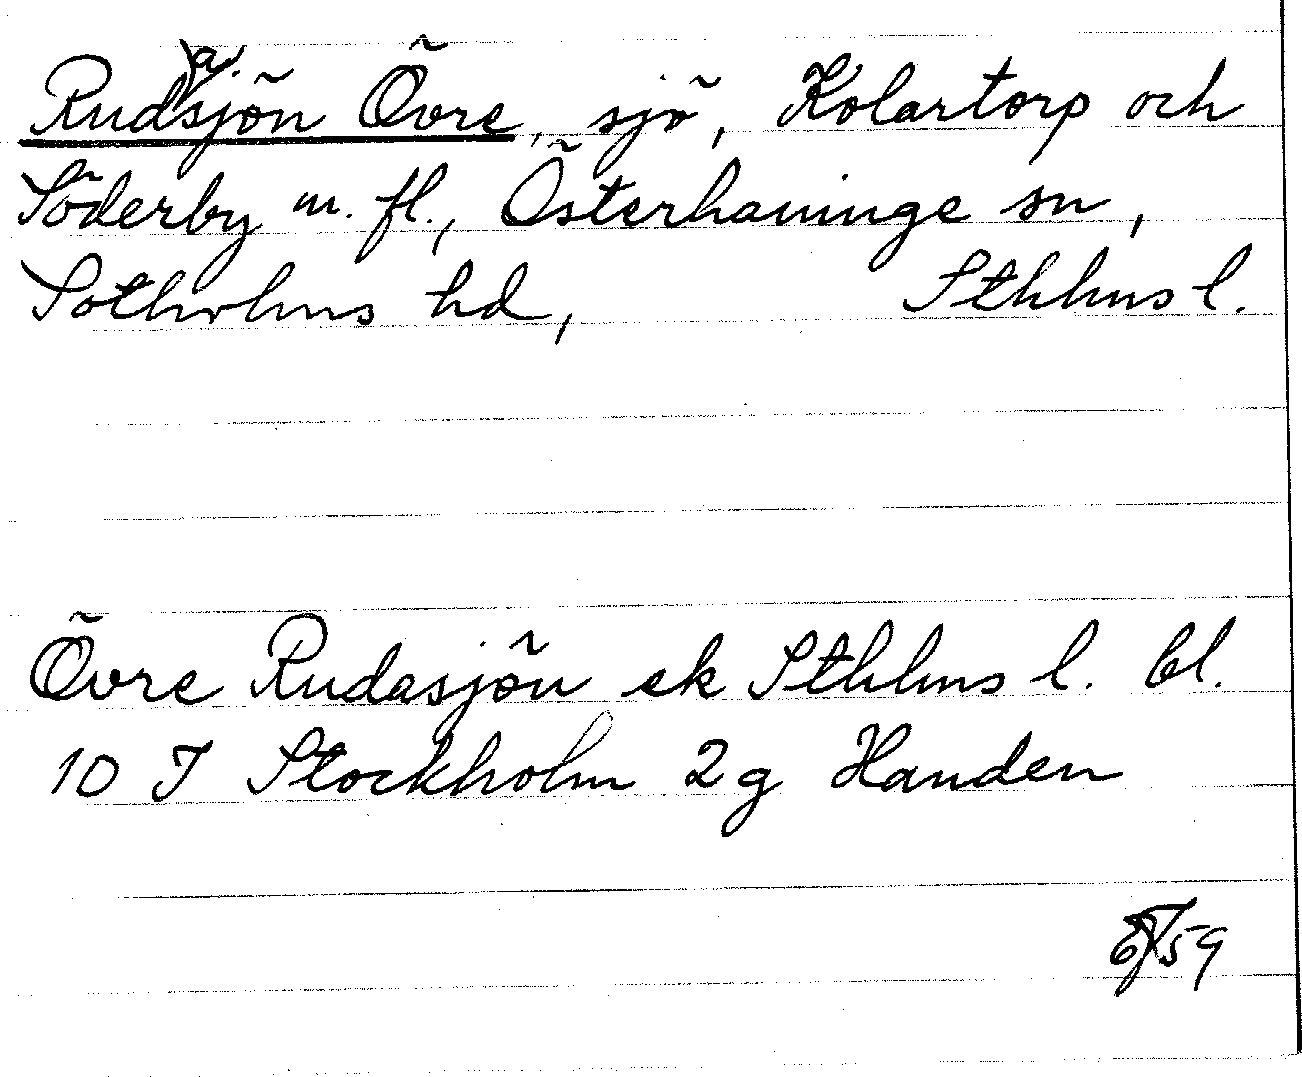 Rudasjön Övre, sjö, Kolartorp och
Söderby m. fl., Österhaninge sn,
Sotholms hd, Sthlms l.
Övre Rudasjön ek Sthlms l. bl.
10 I Stockholm 2g Handen